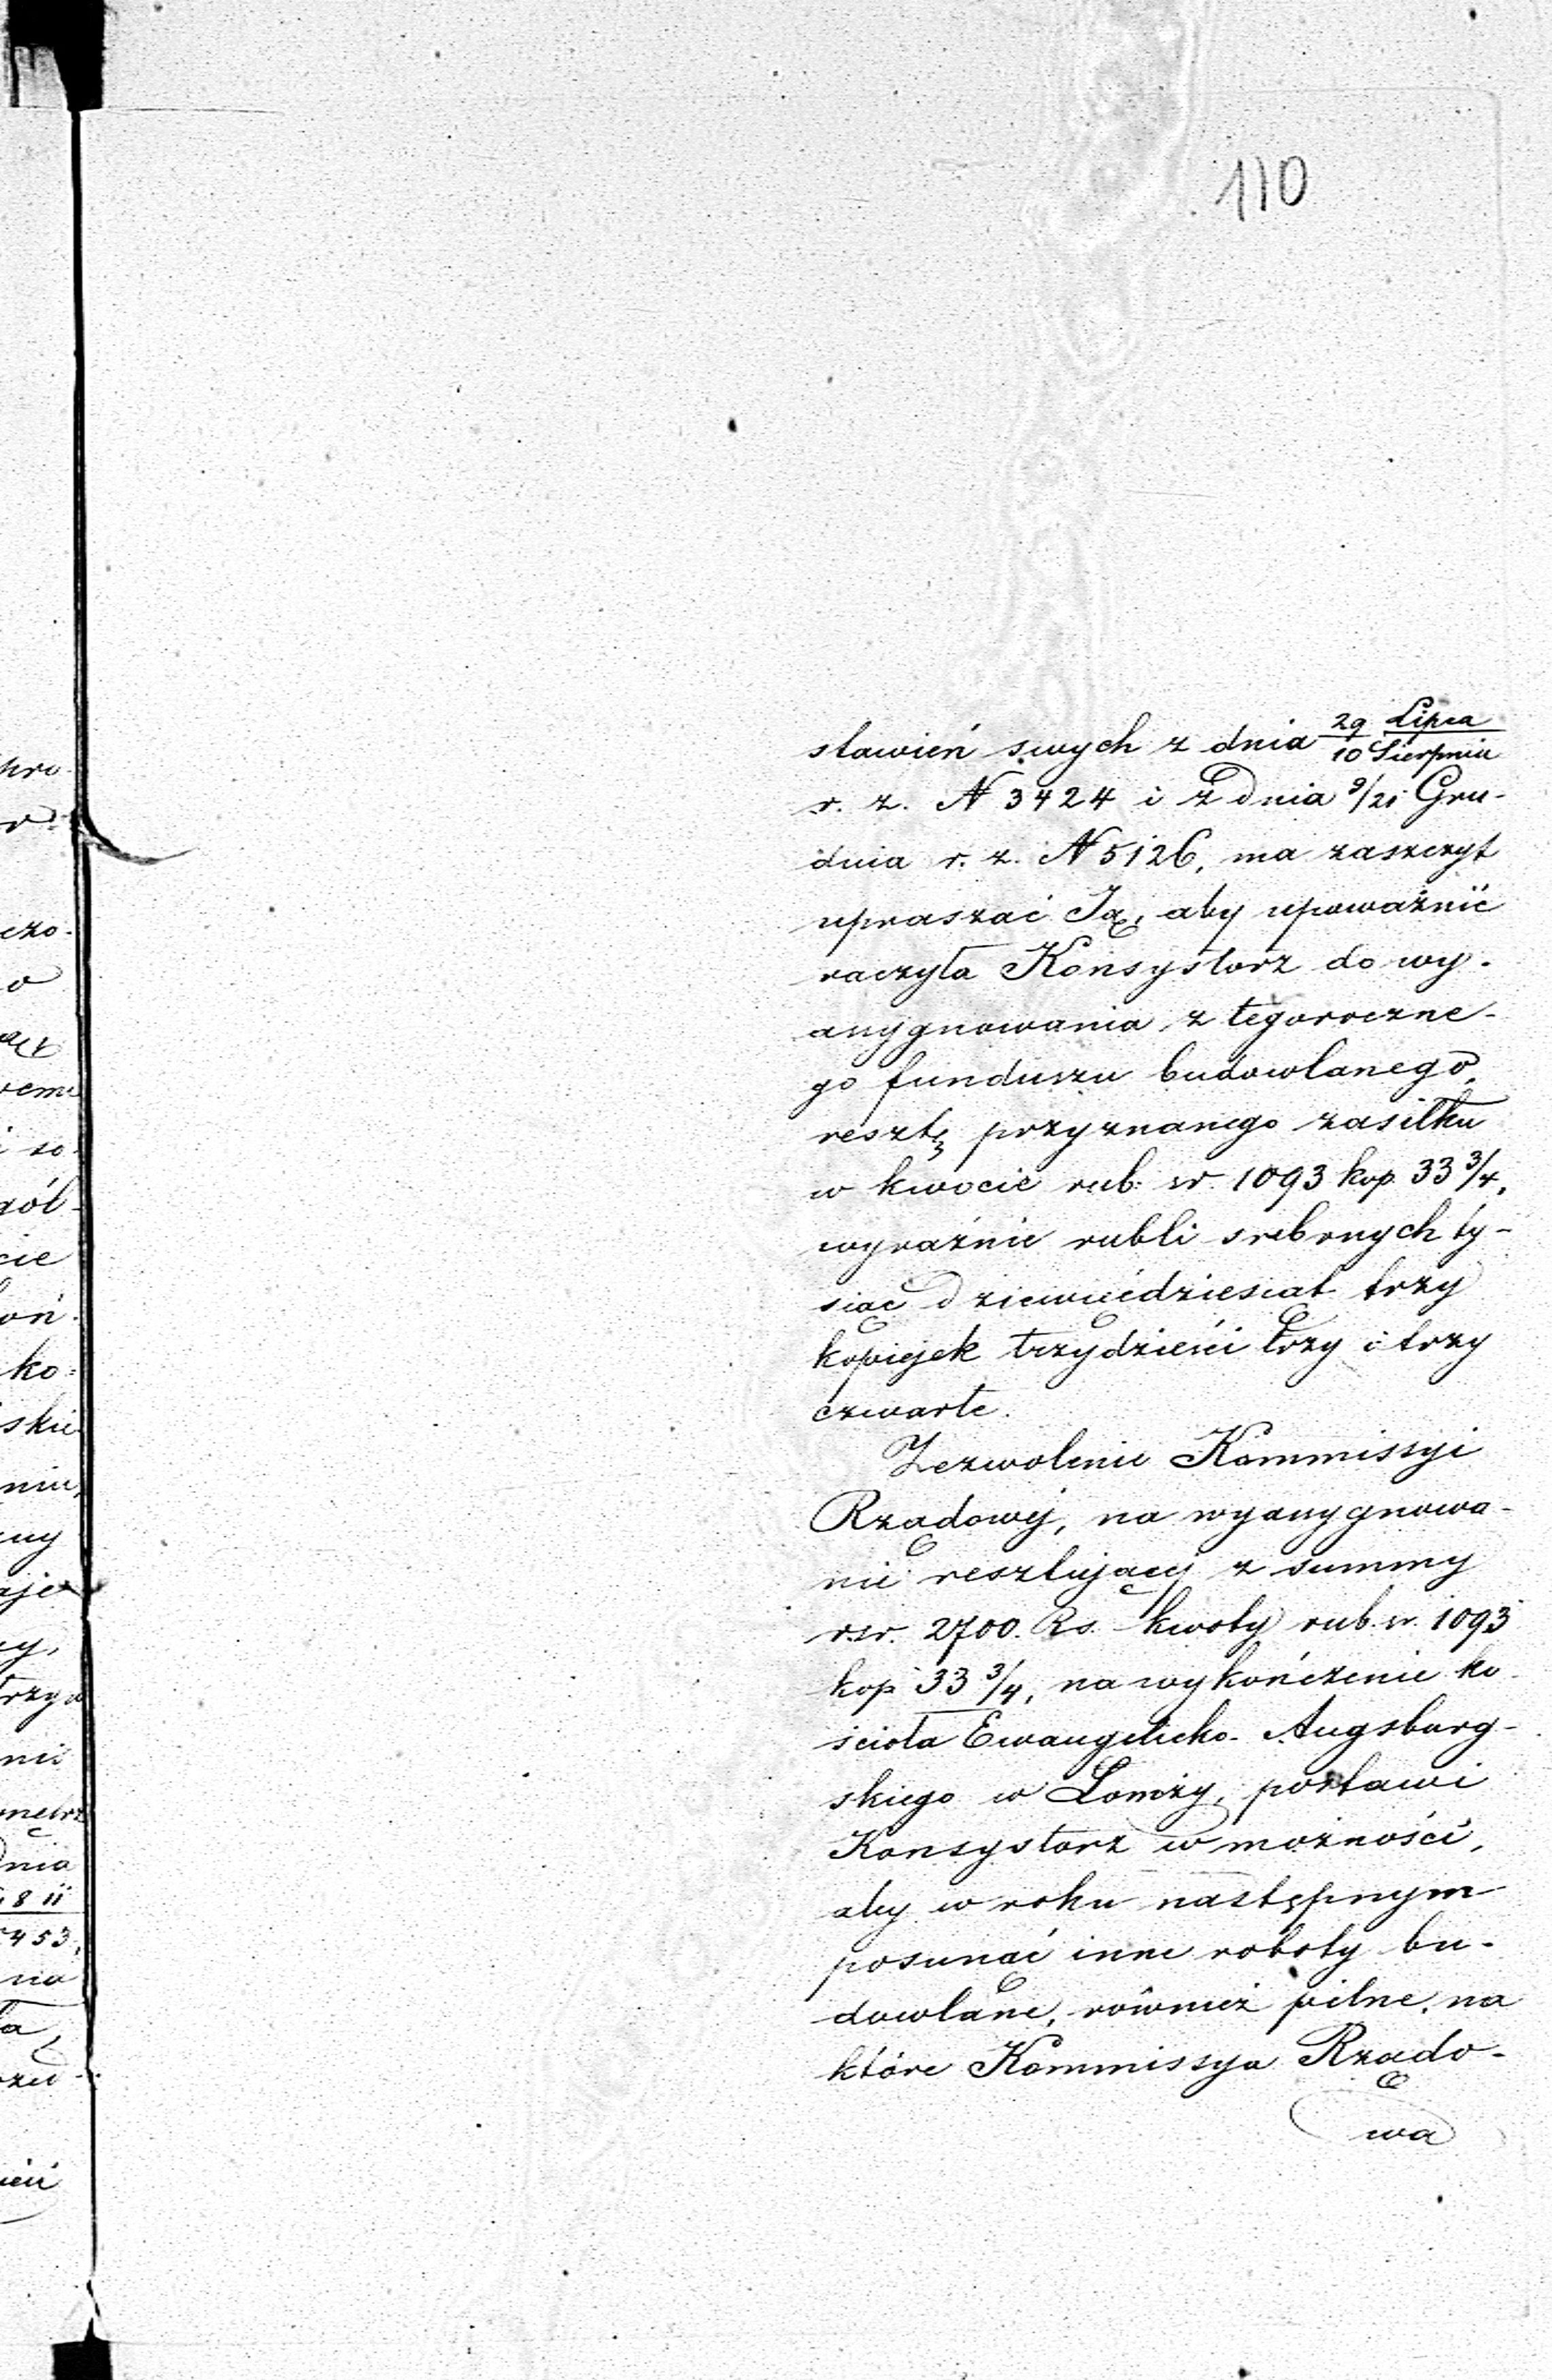 110
stawień swych z dnia 29 Lipca / 10 Sierpnia
r. z. N 3424 i z dnia 9/21 Gru-
dnia r. z. N 5126, ma zaszczyt
upraszać Ją, aby upoważnić
raczyła Konsystorz do wy-
asygnowania z tegorocznе-
go funduszu budowlanego,
resztę przyznanego zasiłku
w kwocie rub: sr. 1093 kop. 33 3/4,
wyraźnie rubli srebrnych ty-
siąc dziewięćdziesiąt trzy
kopiejek trzydzieści trzy i trzy
czwarte.
Zezwolenie Kommissyi
Rządowej, na wyasygnowa-
nie resztującej z summy
rsr. 2700. Rs. kwoty rub. sr. 1093
kop 33 3/4, na wykończenie ko-
ścioła Ewangelicko-Augsburg-
skiego w Łomży, postawi
Konsystorz w możności,
aby w roku następnym
posunąć inne roboty bu-
dowlane, również pilne, na
które Kommissya Rządo-
wa